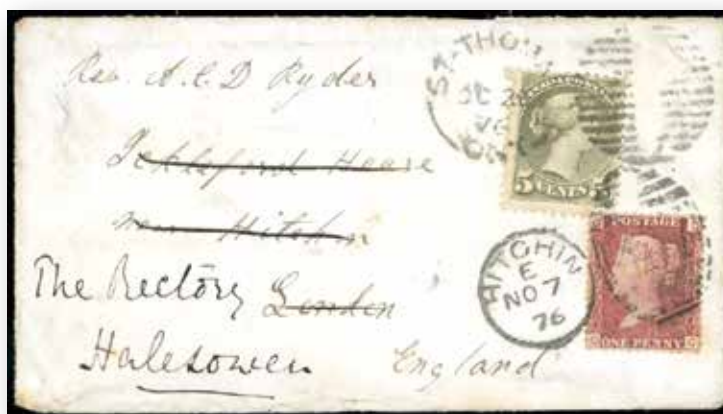 Rev. A. C. D. Ryder
near Hitchin
The Rectory London
Halesowen England
ST-THOM
OC 2
76
ONT
5 CENTS 5
HITCHIN
E
NO 7
76
POSTAGE
ONE PENNY